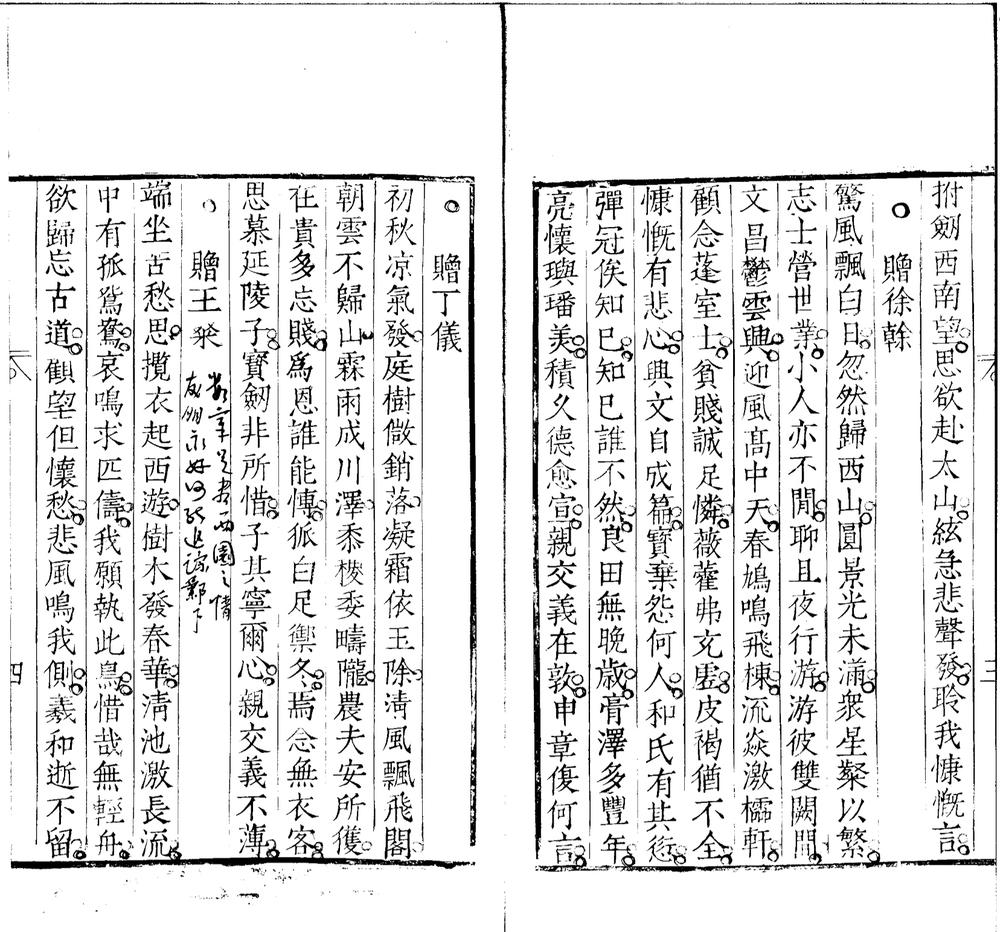 拊劒西南望思欲赴太山絃急悲聲發聆我慷慨言
贈徐幹
驚風飄白日忽然歸西山圓景光未滿衆星粲以繁
志士營世業小人亦不閒聊且夜行游游彼雙闕間
文昌鬱雲興迎風髙中天春鳩鳴飛棟流猋激櫺軒
顧念蓬室士貧賤誠足憐薇藿弗充虛皮褐猶不全
慷慨有悲心興文自成篇寶棄怨何人和氏有其愆
彈冠俟知已知已誰不然良田無晚歳膏澤多豐年
亮懷璵璠美積久德愈宣親交義在敦申章復何言
贈丁儀
初秋凉氣發庭樹微銷落凝霜依玉除淸風飄飛閣
朝雲不歸山霖雨成川澤黍稷委疇隴農夫安所獲
在貴多忘賤爲恩誰能愽狐白足禦冬焉念無衣客
思慕延陵子寶劒非所惜子其寧爾心親交義不薄
贈王粲
端坐苦愁思攬衣起西遊樹木發春華淸池激長流
中有孤鴛鴦哀鳴求匹儔我願執此鳥惜哉無輕舟
欲歸忘古道顧望但懷愁悲風鳴我側羲和逝不留
三
四